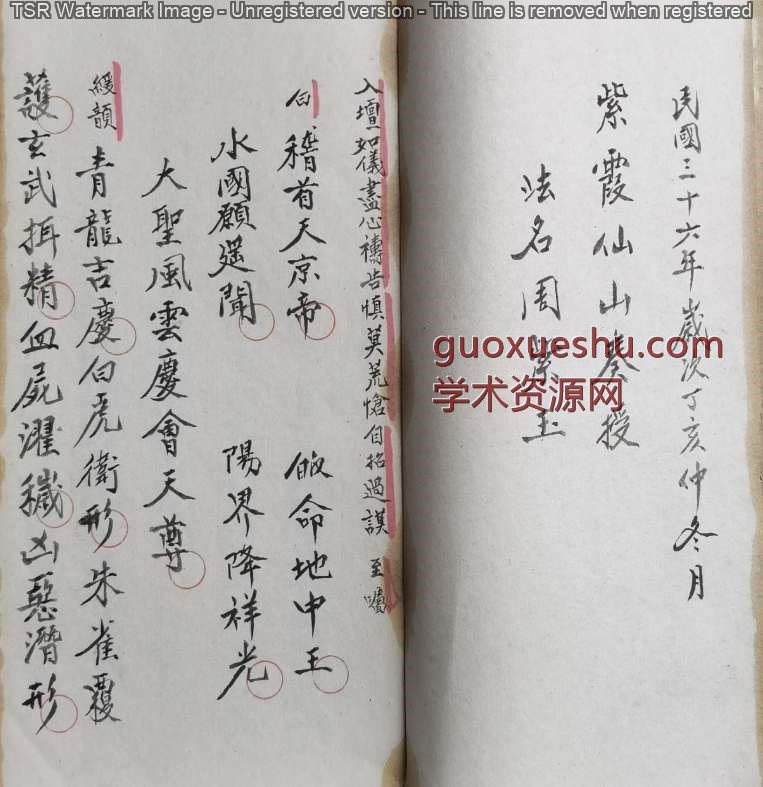 TSR Watermark Image - Unregistered version - This line is removed when registered
民國三十六年歲次丁亥仲冬月
紫霞仙山奏授
法名周紫玉
guoxueshu.com
学术资源网
入壇如儀盡心禱告慎莫荒愴自招過謨 至囑
白 稽首天京帝 皈命地申王
水國願遥聞 陽界降祥光
大聖風雲慶會天尊
緩韻 青龍吉慶白虎衛形朱雀覆
護玄武揖精血屍濯穢凶惡潛形